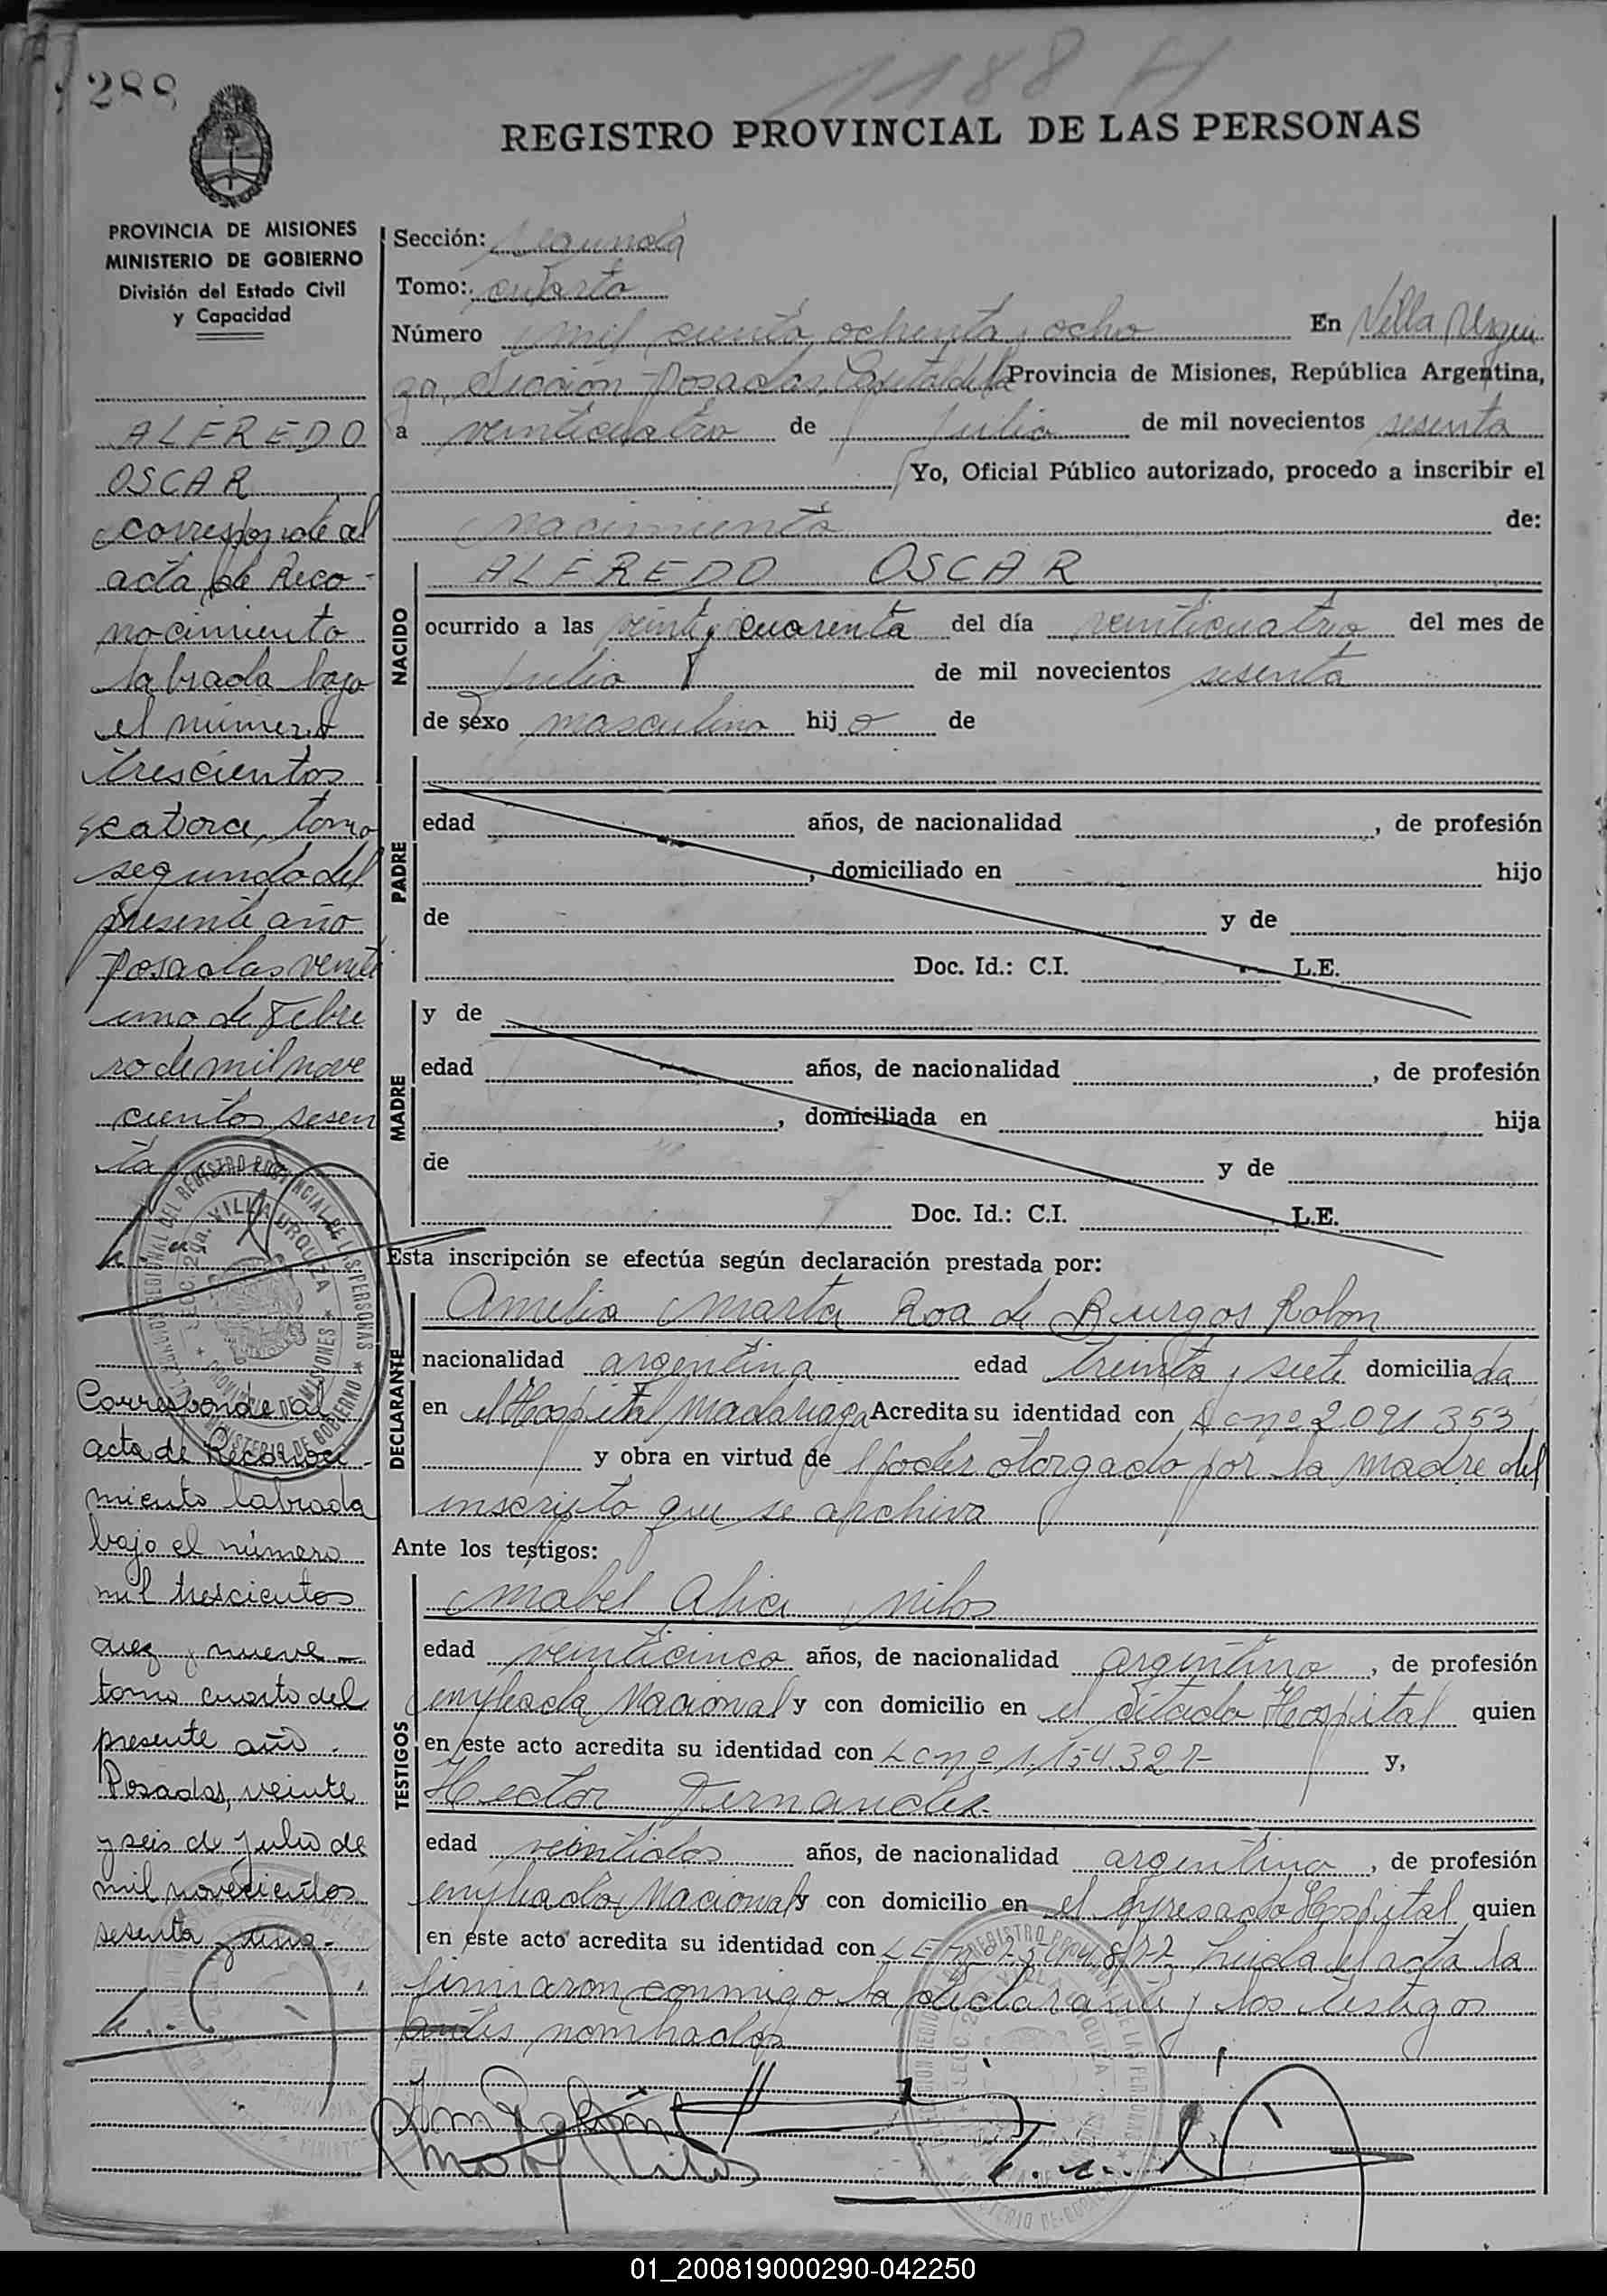 1188 H
288
REGISTRO PROVINCIAL DE LAS PERSONAS
PROVINCIA DE MISIONES
MINISTERIO DE GOBIERNO
División del Estado Civil
y Capacidad
ALFREDO
OSCAR
corresponde al
acta de Reco-
nocimiento
labrada bajo
el número
trescientos
catorce, tomo
segundo del
presente año
Posadas veinti
uno de Febre
ro de mil nove
cientos sesen
ta
Corresponde al
acta de Reconoci-
miento labrada
bajo el número
mil trescientos
diez y nueve
tomo cuarto del
presente año.
Posadas, veinte
y seis de julio de
mil novecientos
sesenta y uno.-
Sección: segunda
Tomo: cuarto
Número mil ciento ochenta y ocho En Villa Urqui
za, Sección Posadas, Capital de la Provincia de Misiones, República Argentina,
a veinticuatro de julio de mil novecientos sesenta
Yo, Oficial Público autorizado, procedo a inscribir el
nacimiento de:
NACIDO
ALFREDO OSCAR
ocurrido a las veinte y cuarenta del día veinticuatro del mes de
julio de mil novecientos sesenta
de sexo masculino hijo de
PADRE
edad años, de nacionalidad , de profesión
, domiciliado en hijo
de y de
Doc. Id.: C.I. L.E.
MADRE
y de
edad años, de nacionalidad , de profesión
, domiciliada en hija
de y de
Doc. Id.: C.I. L.E.
Esta inscripción se efectúa según declaración prestada por:
DECLARANTE
Amelia Marta Roa de Burgos Robon
nacionalidad argentina edad treinta y siete domiciliada
en el Hospital Madariaga Acredita su identidad con L C nº 2.091.353
y obra en virtud de poder otorgado por la madre del
inscripto que se archiva
Ante los testigos:
TESTIGOS
Mabel Alicia Milos
edad veinticinco años, de nacionalidad argentina, de profesión
empleada Nacional y con domicilio en el citado Hospital quien
en este acto acredita su identidad con L C nº 1.154.327 y,
Hector Fernandez
edad veintidos años, de nacionalidad argentino, de profesión
empleado Nacional y con domicilio en el expresado Hospital quien
en este acto acredita su identidad con L E Leida el acta la
firmaron conmigo la declarante y los testigos
antes nombrados
01_200819000290-042250